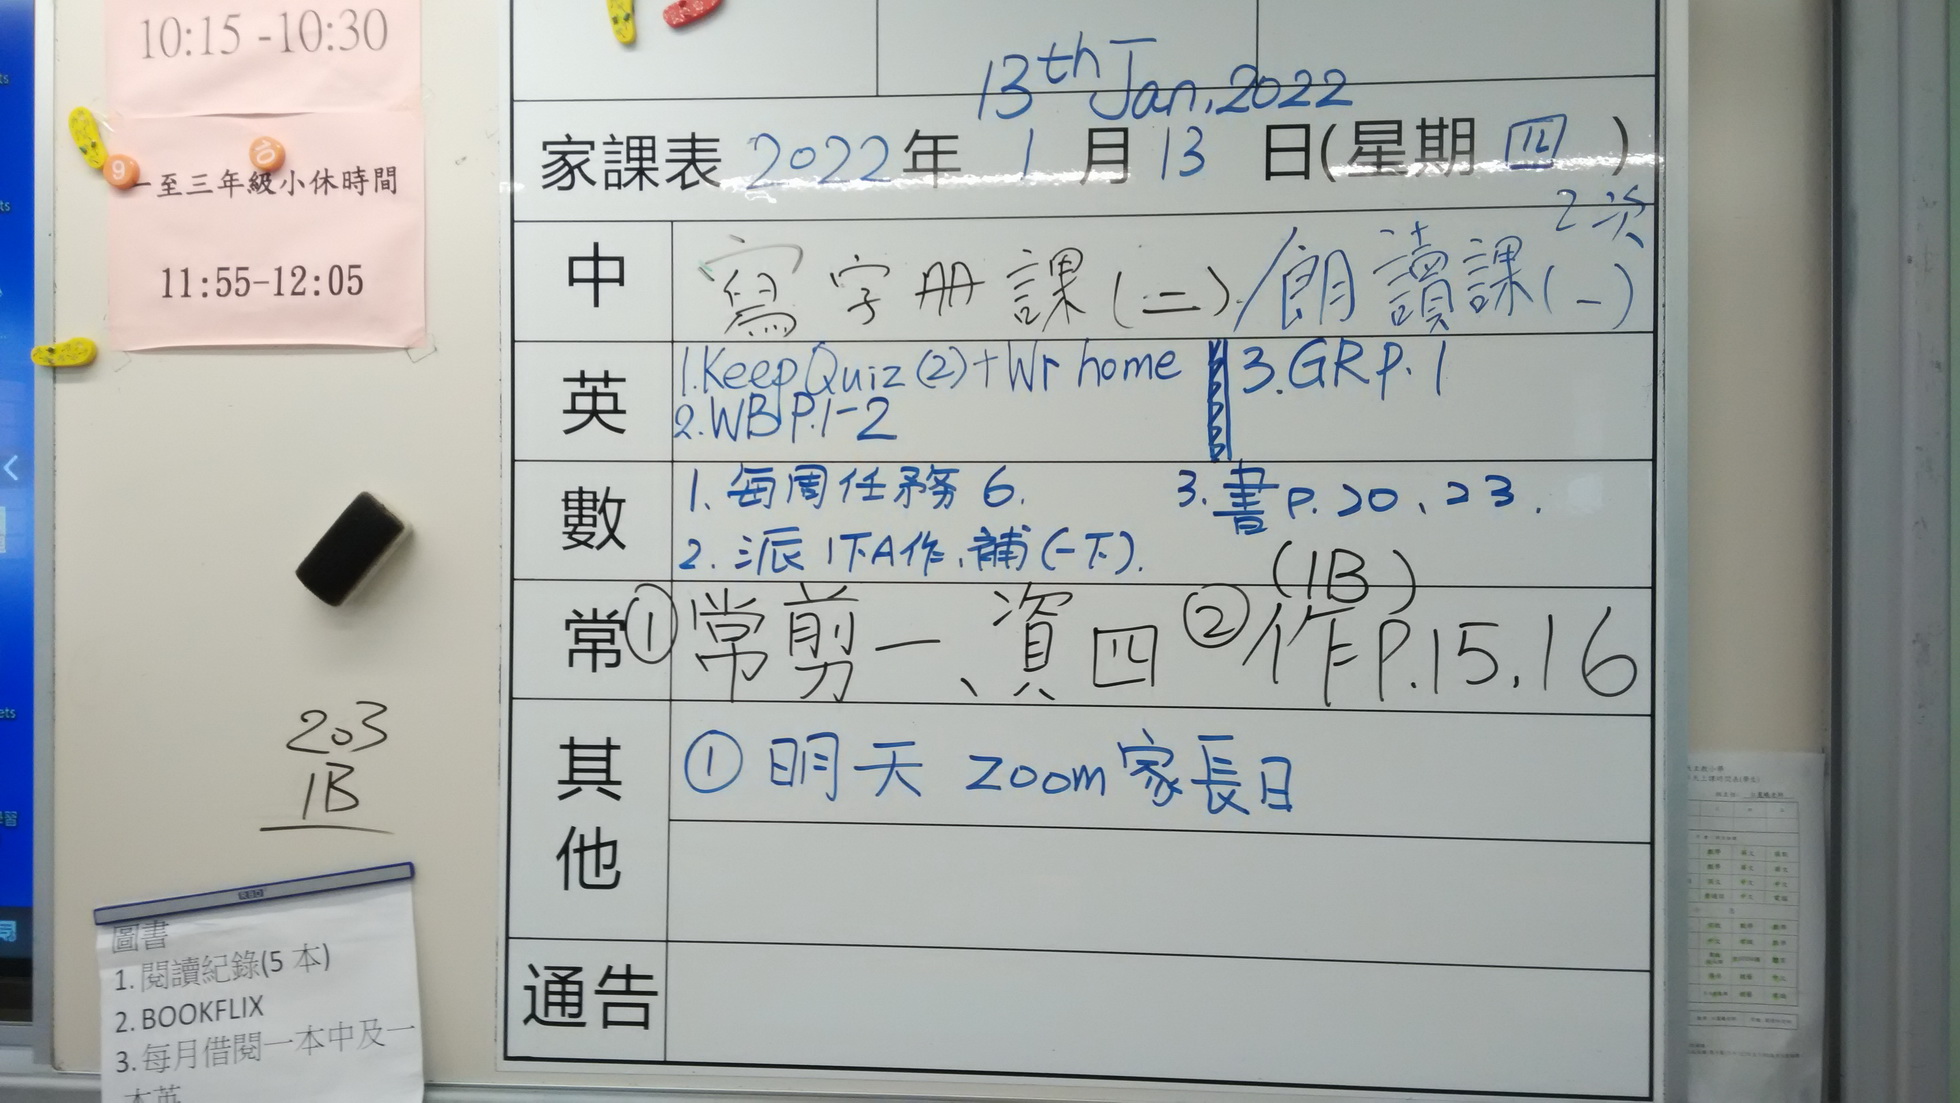 10:15 -10:30
一至三年級小休時間
11:55-12:05
9
10
203
1B
圖書
1. 閱讀紀錄(5 本)
2. BOOKFLIX
3. 每月借閱一本中及一
本英
13th Jan, 2022
家課表 2022年 1 月 13 日(星期 四 )
2次
中 寫字册課(二)/朗讀課(一)
英 1. Keep Quiz (2) + Wr home 3. GR P. 1
2. WB P.1-2
數 1. 每周任務 6. 3. 書 P. 20、23.
2. 派 1下A作、補(一下).
(1B)
常 ① 常剪一、資四 ② 作P.15, 16
其他 ① 明天 zoom 家長日
通告